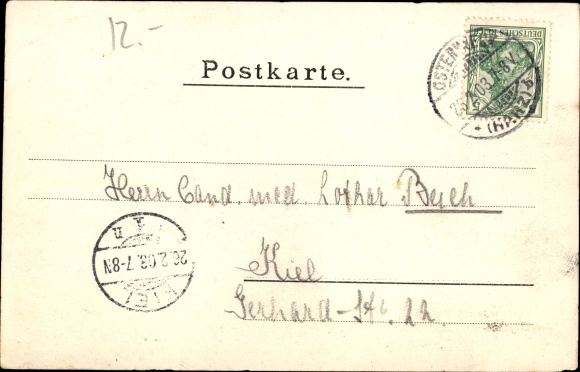 12.-
Postkarte.
DEUTSCHES REICH
5 5
OSTERWIECK
7-8V.
(HARZ)
Herrn Cand. med. Lothar Busch
Kiel
Gerhard-Str. 22
KIEL
26.2.03.7-8N
1 n